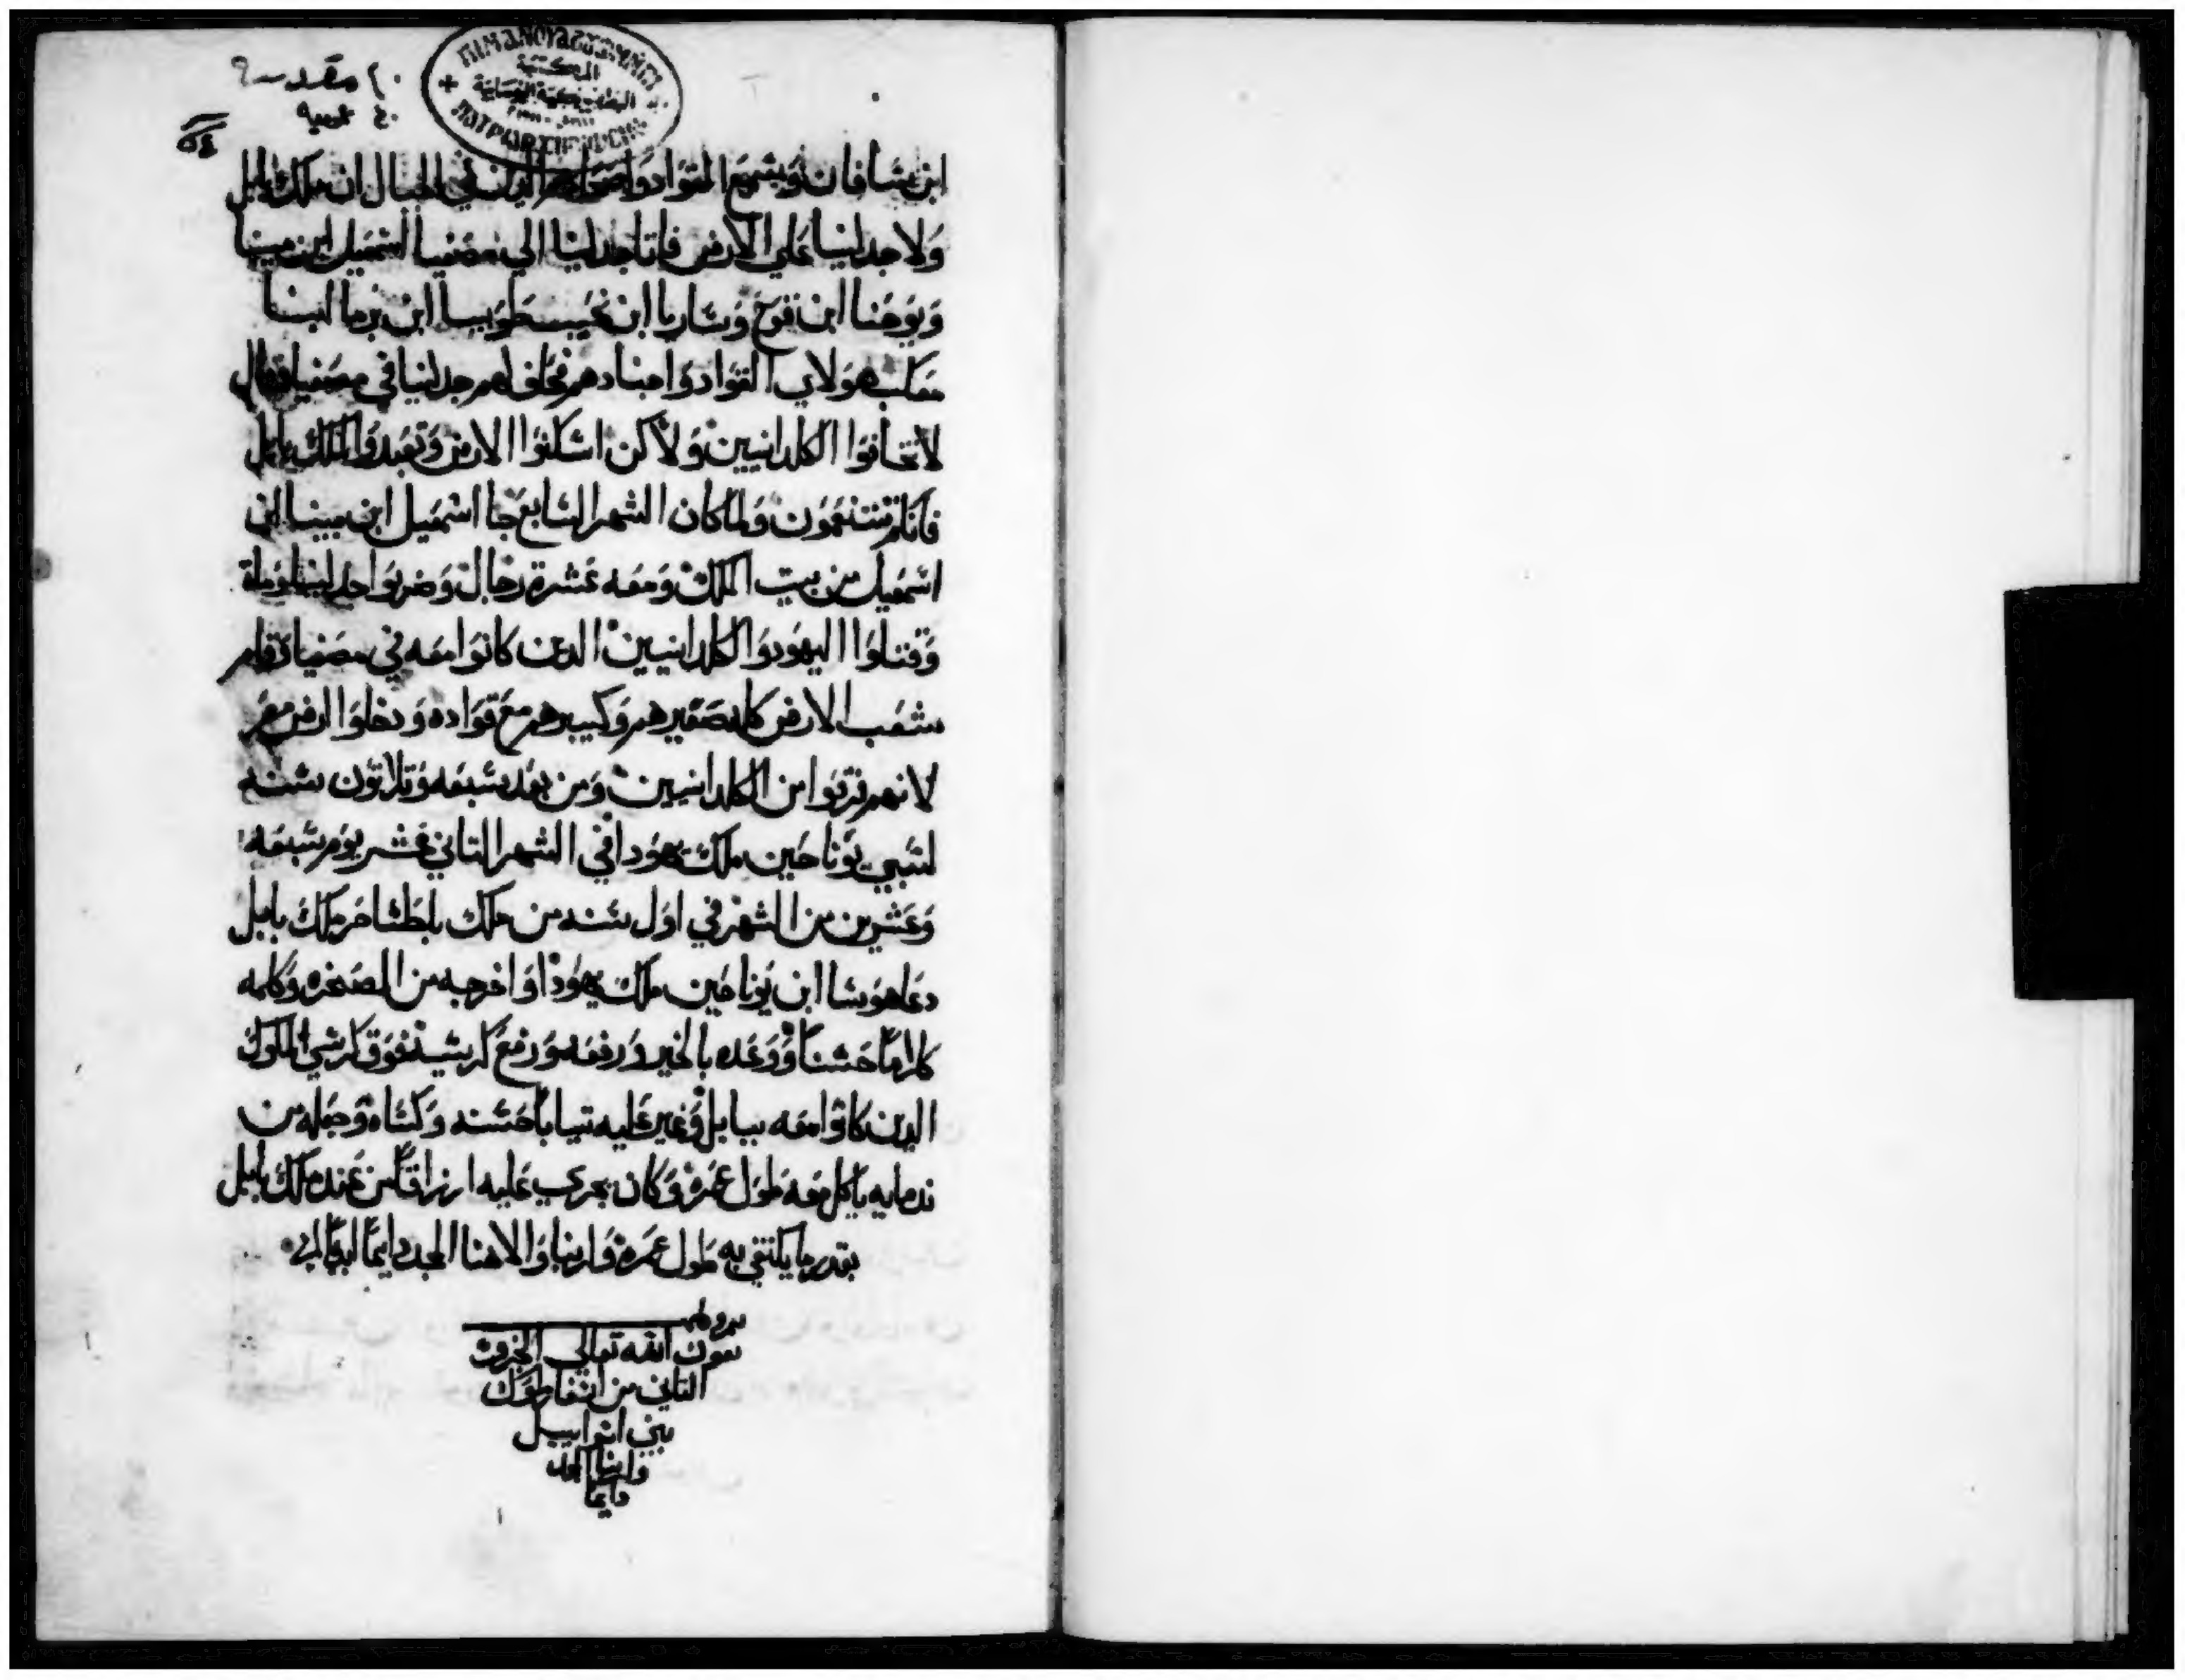 ٢٠ مقدسة
٤٠
المكتبة
البطريركية القبطية
ابن شافان ويشمع القواد واصحابهم الدين في الجبال ان ملك بابل
ولا جدلنيا علي الارض فاتا جدلنيا الي مصفيا اسمعيل ابن ميينا
ويوحنا ابن قرح وساريا ابن
هولاي القواد واجنادهم فحلف لهم جدلنيا في مصفيا وقال
لا تخافوا الكلدانيين ولاكن اسكنوا الارض وتعبدوا لملك بابل
فانكم تتنعمون ولما كان الشهر السابع جا اسمعيل ابن ميينا ابن
اسمعيل من بيت الملك ومعه عشرة رجال وضربوا جدلنيا
وقتلوا اليهود والكلدانيين الدين كانوا معه في مصفيا وقام
شعب الارض كله صغيرهم وكبيرهم مع قواده ودخلوا ارض مصر
لانهم فرقوا من الكلدانيين ومن بعد سبعه وتلاتون سنه
لسبي يوناحين ملك يهودا في الشهر التاني عشر يوم سبعه
وعشرين من الشهر في اول سنه من ملك بلطشاصر ملك بابل
دعا هوشا ابن يوناحين ملك يهودا واخرجه من الصخره وكلمه
كلاماً حسناً ووعده بالخير ورفعه ورفع كرسيه فوق كرسي الملوك
الدين كانوا معه ببابل وغير عليه تياباً حسنه وكساه وجعله من
ندمايه ياكل معه طول عمره وكان يجري عليه ارزاقاً من عند ملك بابل
بقدر ما يكتفي به طول عمره ولربنا والاهنا المجد دايماً ابدياً
بعون الله تعالي
التاني من اسفار ملوك
بني اسراييل
ولربنا المجد
دايماً